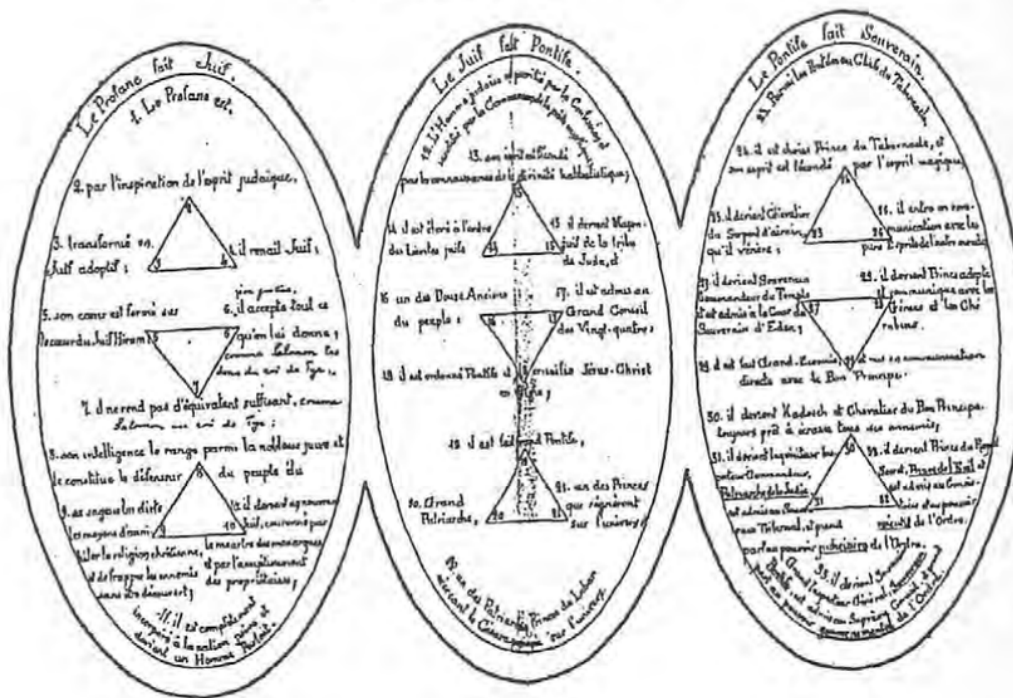 Le Profane fait Juif.
1. Le Profane est.
2. par l'inspiration de l'esprit judaïque,
3. transformé en
Juif adoptif;
4. il renait Juif;
5. son cœur est formé sur
le cœur du Juif Hiram
6. il accepte tout ce
qu'on lui donne,
comme Salomon les
dons du roi de Tyr.
7. il ne rend pas d'équivalent suffisant, comme
Salomon au roi de Tyr;
8. son intelligence le range parmi la noblesse juive et
le constitue le défenseur du peuple élu
9. on lui dicte
les moyens d'anni-
hiler la religion chrétienne,
et de frapper les ennemis
sans être découvert;
10. il devient
Juif, couronné par
le meurtre des monarques
et par l'assujettissement
des propriétaires;
11. il est complètement
incorporé à la nation juive, et
devient un Homme Parfait.
Le Juif fait Pontife.
12. L'Homme judaïsé
13. son esprit est fécondé
par la connaissance de la divinité kabbalistique;
14. il est élevé à l'ordre
des Lévites juifs
15. il devient
Juif de la tribu
de Juda, et
16. un des Douze Anciens
du peuple;
17. il est admis au
Grand Conseil
des Vingt-quatre;
18. il est ordonné Pontife et Jésus-Christ
19. il est fait Grand Pontife,
20. Grand
Patriarche,
21. un des Princes
qui règneront
sur l'univers;
22. un des Patriarches, Prince du Liban
exerçant le sur l'univers.
Le Pontife fait Souverain.
23. Parmi les Chefs du Tabernacle,
24. il est choisi Prince du Tabernacle, et
son esprit est fécondé par l'esprit magique;
25. il devient Chevalier
du Serpent d'airain,
qu'il vénère;
26. il entre en com-
munication avec les
purs Esprits de l'autre monde
27. il devient Souverain
Commandeur du Temple
et est admis à la Cour du
Souverain d'Eden;
28. il devient Prince adepte
et communique avec les
Génies et les Ché-
rubins.
29. il est fait Grand-Ecossais, et mis en communication
directe avec le Bon Principe.
30. il devient Kadosch et Chevalier du Bon Principe
toujours prêt à écraser tous ses ennemis,
31. il devient Inquisiteur Ins-
pecteur Commandeur,
Patriarche de la Justice
est admis au Souve-
rain Tribunal et prend
part au pouvoir judiciaire de l'Ordre.
32. il devient Prince du Royal
Secret, et
est admis au Consis-
toire et au pouvoir
exécutif de l'Ordre.
33. il devient Souverain
Grand Inspecteur Général,
est admis au Suprême Conseil, et prend
part au pouvoir gouvernemental de l'Ordre.